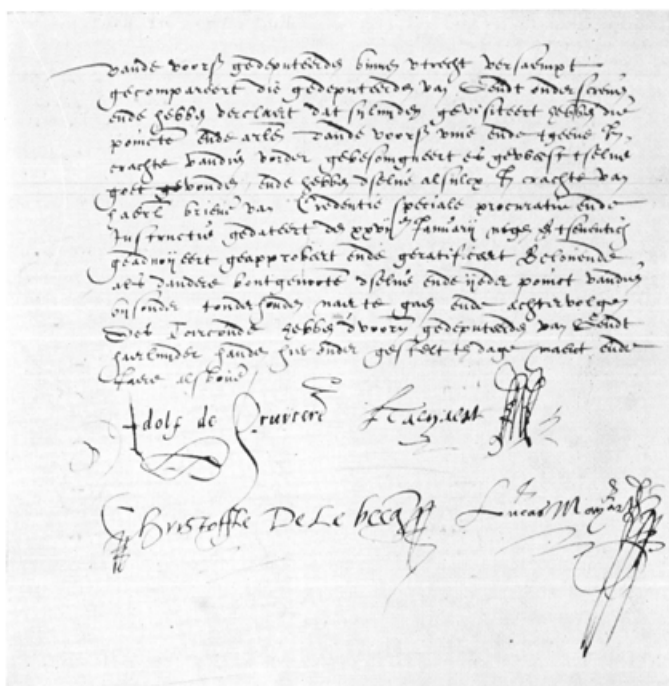 vande voors gedeputeerde binnen utrecht versaempt
gecompareert die gedeputeerde van Gendt onderscreven
ende hebben verclaert dat sijlieden gevisiteert hebben die
poincten ende artlen vande voors unie ende tgeene in
crachte vandien vorder gebesoingneert es geweest tselve
goet gevonden ende hebben tselve alsulcx in crachte van
haerl brieven van Credentie speciale procuratie ende
Instructie gedateert de xxvij Januarij
geadvoijeert geapprobeert ende geratificeert Belovende
als dandere bontgenooten tselve ende ijeder poinct vandien
onder tonderhouden naer te gaen ende achtervolgen
Des Toirconde hebben dvoors gedeputeerde van Gendt
haerlieder handen hier onder gestelt ten dage maent ende
jaere als boven
Adolf de
Christoffle De Le Becq Lucas Mayart